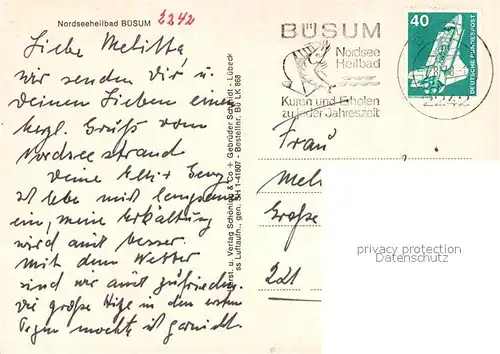 Nordseeheilbad BÜSUM
2242
Liebe Melitta,
wir senden Dir u.
Deinen Lieben einen
herzl. Gruß vom
Nordseestrand
Deine
ist lebe mich langsam
ein, meine Erkältung
wird auch besser.
Mit dem Wetter
sind wir auch zufrieden.
Die große Hitze in den ersten
Tagen mochte ich garnicht.
Herst. u. Verlag Schöning & Co + Gebrüder Schmidt - Lübeck
ss Luftaufn., gen. SH 1-41807 - Bestellnr. Bü LK 668
BÜSUM
Nordsee
Heilbad
Kuren und Erholen
zu jeder Jahreszeit
40
DEUTSCHE BUNDESPOST
2242
Frau
Große
221
privacy protection
Datenschutz